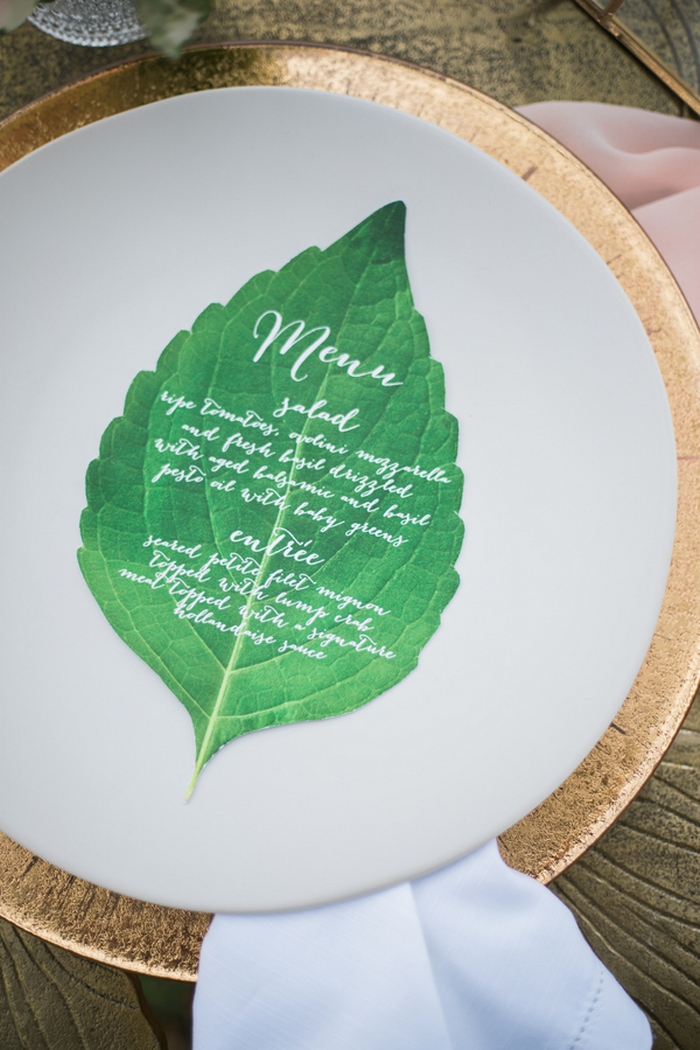 Menu
salad
ripe tomatoes, ovolini mozzarella
and fresh basil drizzled
with aged balsamic and basil
pesto oil with baby greens
entrée
seared petite filet mignon
topped with lump crab
meat topped with a signature
hollandaise sauce